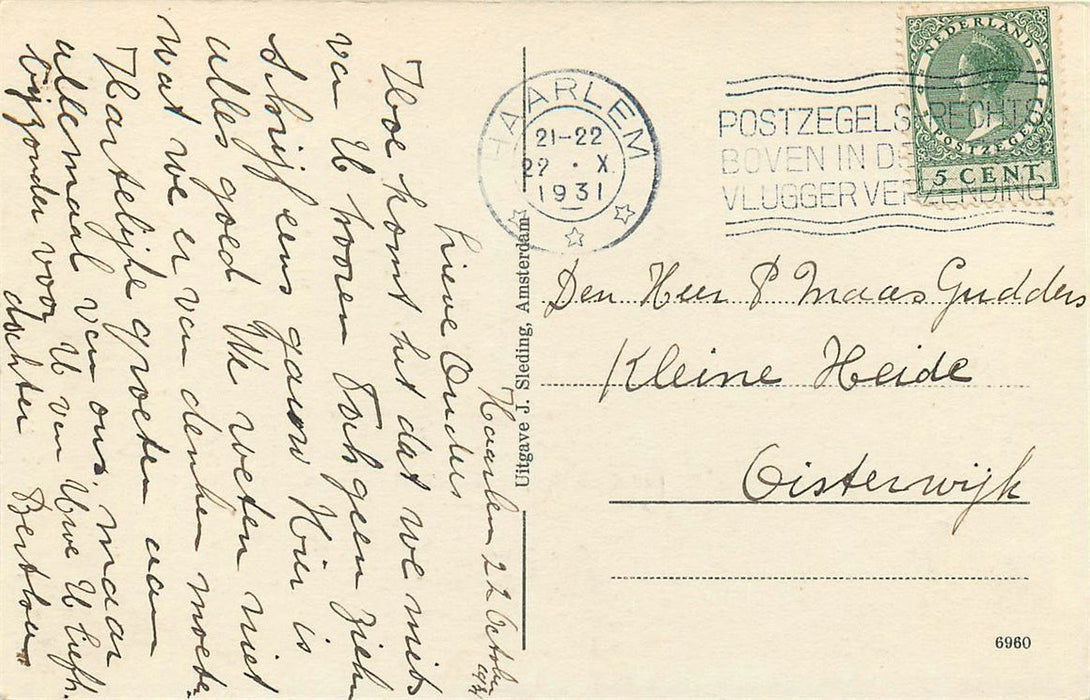 Haarlem 22 October 1931
Lieve Ouders
Hoe komt het dat we niets
van U hooren Toch geen ziek
schrijf eens gauw Hier is
alles goed We weten niet
wat we er van denken moete.
Hartelijke groeten aan
allemaal van ons, maar
bijzonder voor U van Uwe U liefh.
dochter Bertha
HAARLEM
21-22
22 · X
1931
POSTZEGELS RECHTS
BOVEN IN DE
VLUGGER VERZENDING
NEDERLAND
POSTZEGEL
5 CENT.
Uitgave J. Sleding, Amsterdam
Den Heer P Maas Gudders
Kleine Heide
Oisterwijk
6960